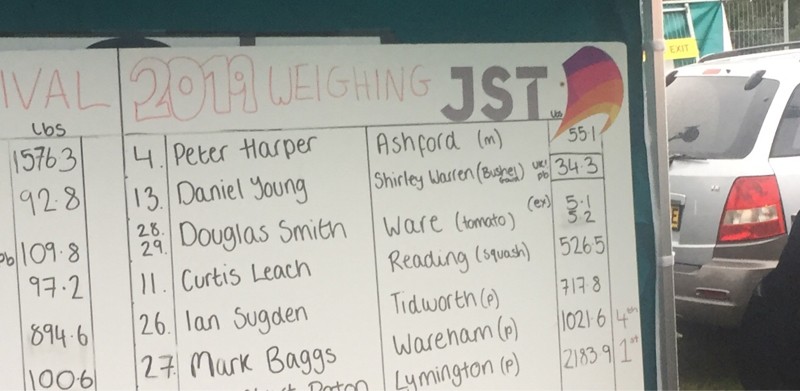 IVAL
lbs
1576.3
92.8
pb 109.8
97.2
894.6
1006
2019 WEIGHING JST
lbs
4. Peter Harper Ashford (m) 55.1
13. Daniel Young Shirley Warren (Bushel gourd) UK! pb 34.3
28. Douglas Smith Ware (tomato) (ex) 5.1
29. 5.2
11. Curtis Leach Reading (squash) 526.5
26. Ian Sugden Tidworth (p) 717.8
27. Mark Baggs Wareham (p) 1021.6 4th
Paton Lymington (p) 2183.9 1st
EXIT